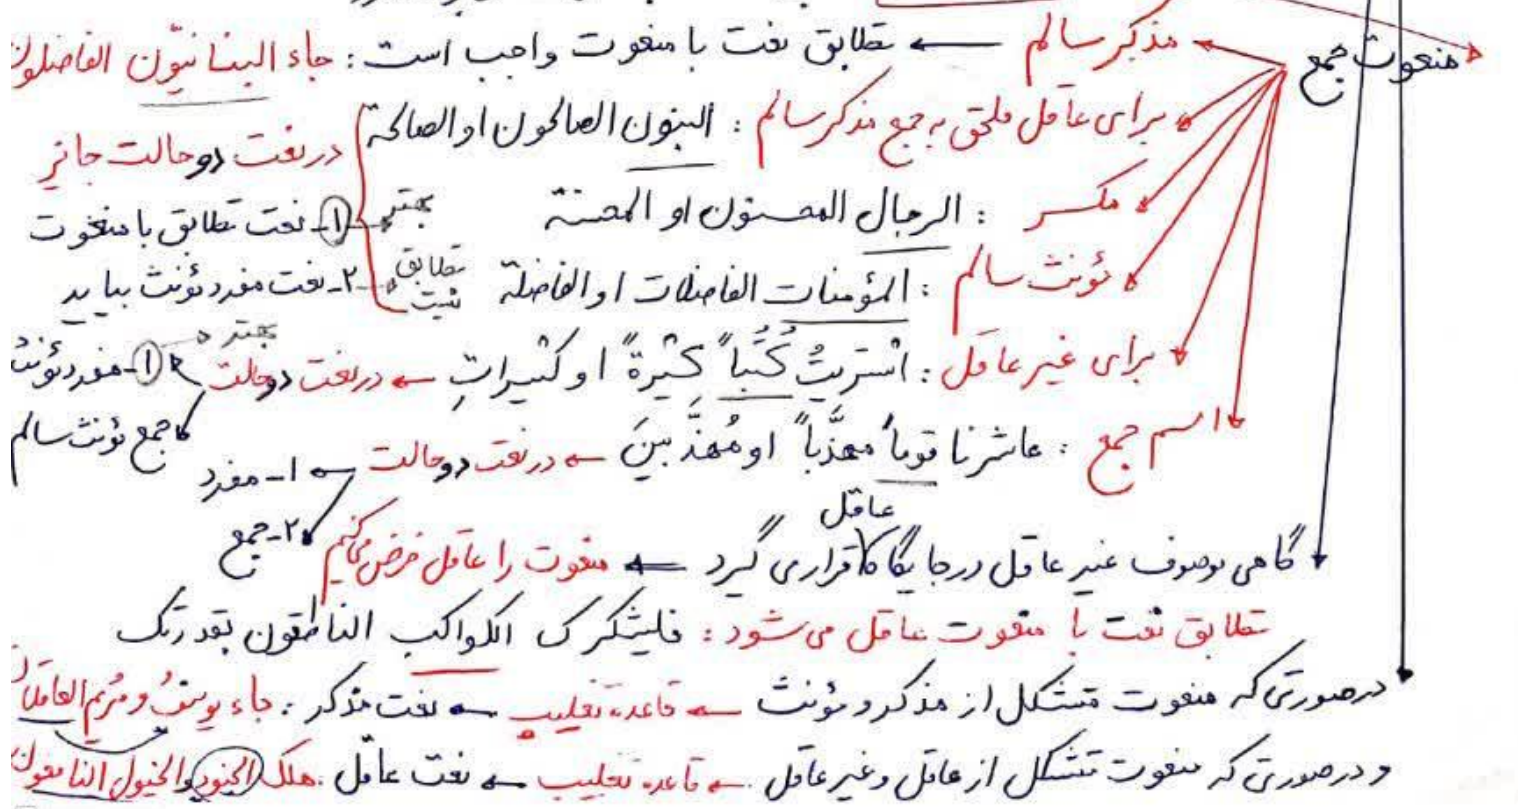 منعوت جمع
مذکر سالم ← تطابق نعت با منعوت واجب است : جاء البنانیّون الفاضلون
برای عاقل ملحق به جمع مذکر سالم : البنون الصالحون او الصالحة
در نعت دو حالت جایز
مکسر : الرجال المحسنون او المحسنة
بهتر ۱- نعت تطابق با منعوت
مؤنث سالم : المؤمنات الفاضلات او الفاضلة
تطابق نیست ۲- نعت مفرد مؤنث بیاید
برای غیر عاقل : اشتریتُ کُتُباً کثیرةً او کثیراتٍ ← در نعت دو حالت
بهتر
۱- مفرد مؤنث
جمع مؤنث سالم
اسم جمع : عاشرنا قوماً مهذَّباً او مُهذَّبینَ ← در نعت دو حالت ← ۱- مفرد
۲- جمع
عاقل
گاهی موصوف غیر عاقل در جایگاه قرار می گیرد ← منعوت را عاقل فرض می کنیم
تطابق نعت با منعوت عاقل می شود : فلیشکرک الکواکب الناطقون بقدرتک
در صورتی که منعوت متشکل از مذکر و مؤنث ← قاعده تغلیب ← نعت مذکر : جاء یوسفُ و مریم العاملان
و در صورتی که منعوت متشکل از عاقل و غیر عاقل ← قاعده تغلیب ← نعت عاقل . هلک الجنود والخیول النافعون